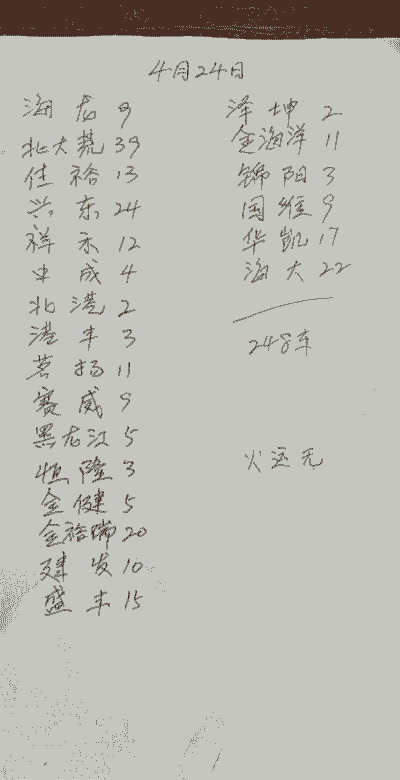 4月24日
海龙 9
北大荒 39
佳裕 13
兴东 24
祥禾 12
中成 4
北港 2
港丰 3
茗扬 11
赛威 9
黑龙江 5
恒隆 3
金健 5
金裕瑞 20
建发 10
盛丰 15
泽坤 2
金海洋 11
锦阳 3
国维 9
华凯 17
海大 22
248车
火运无